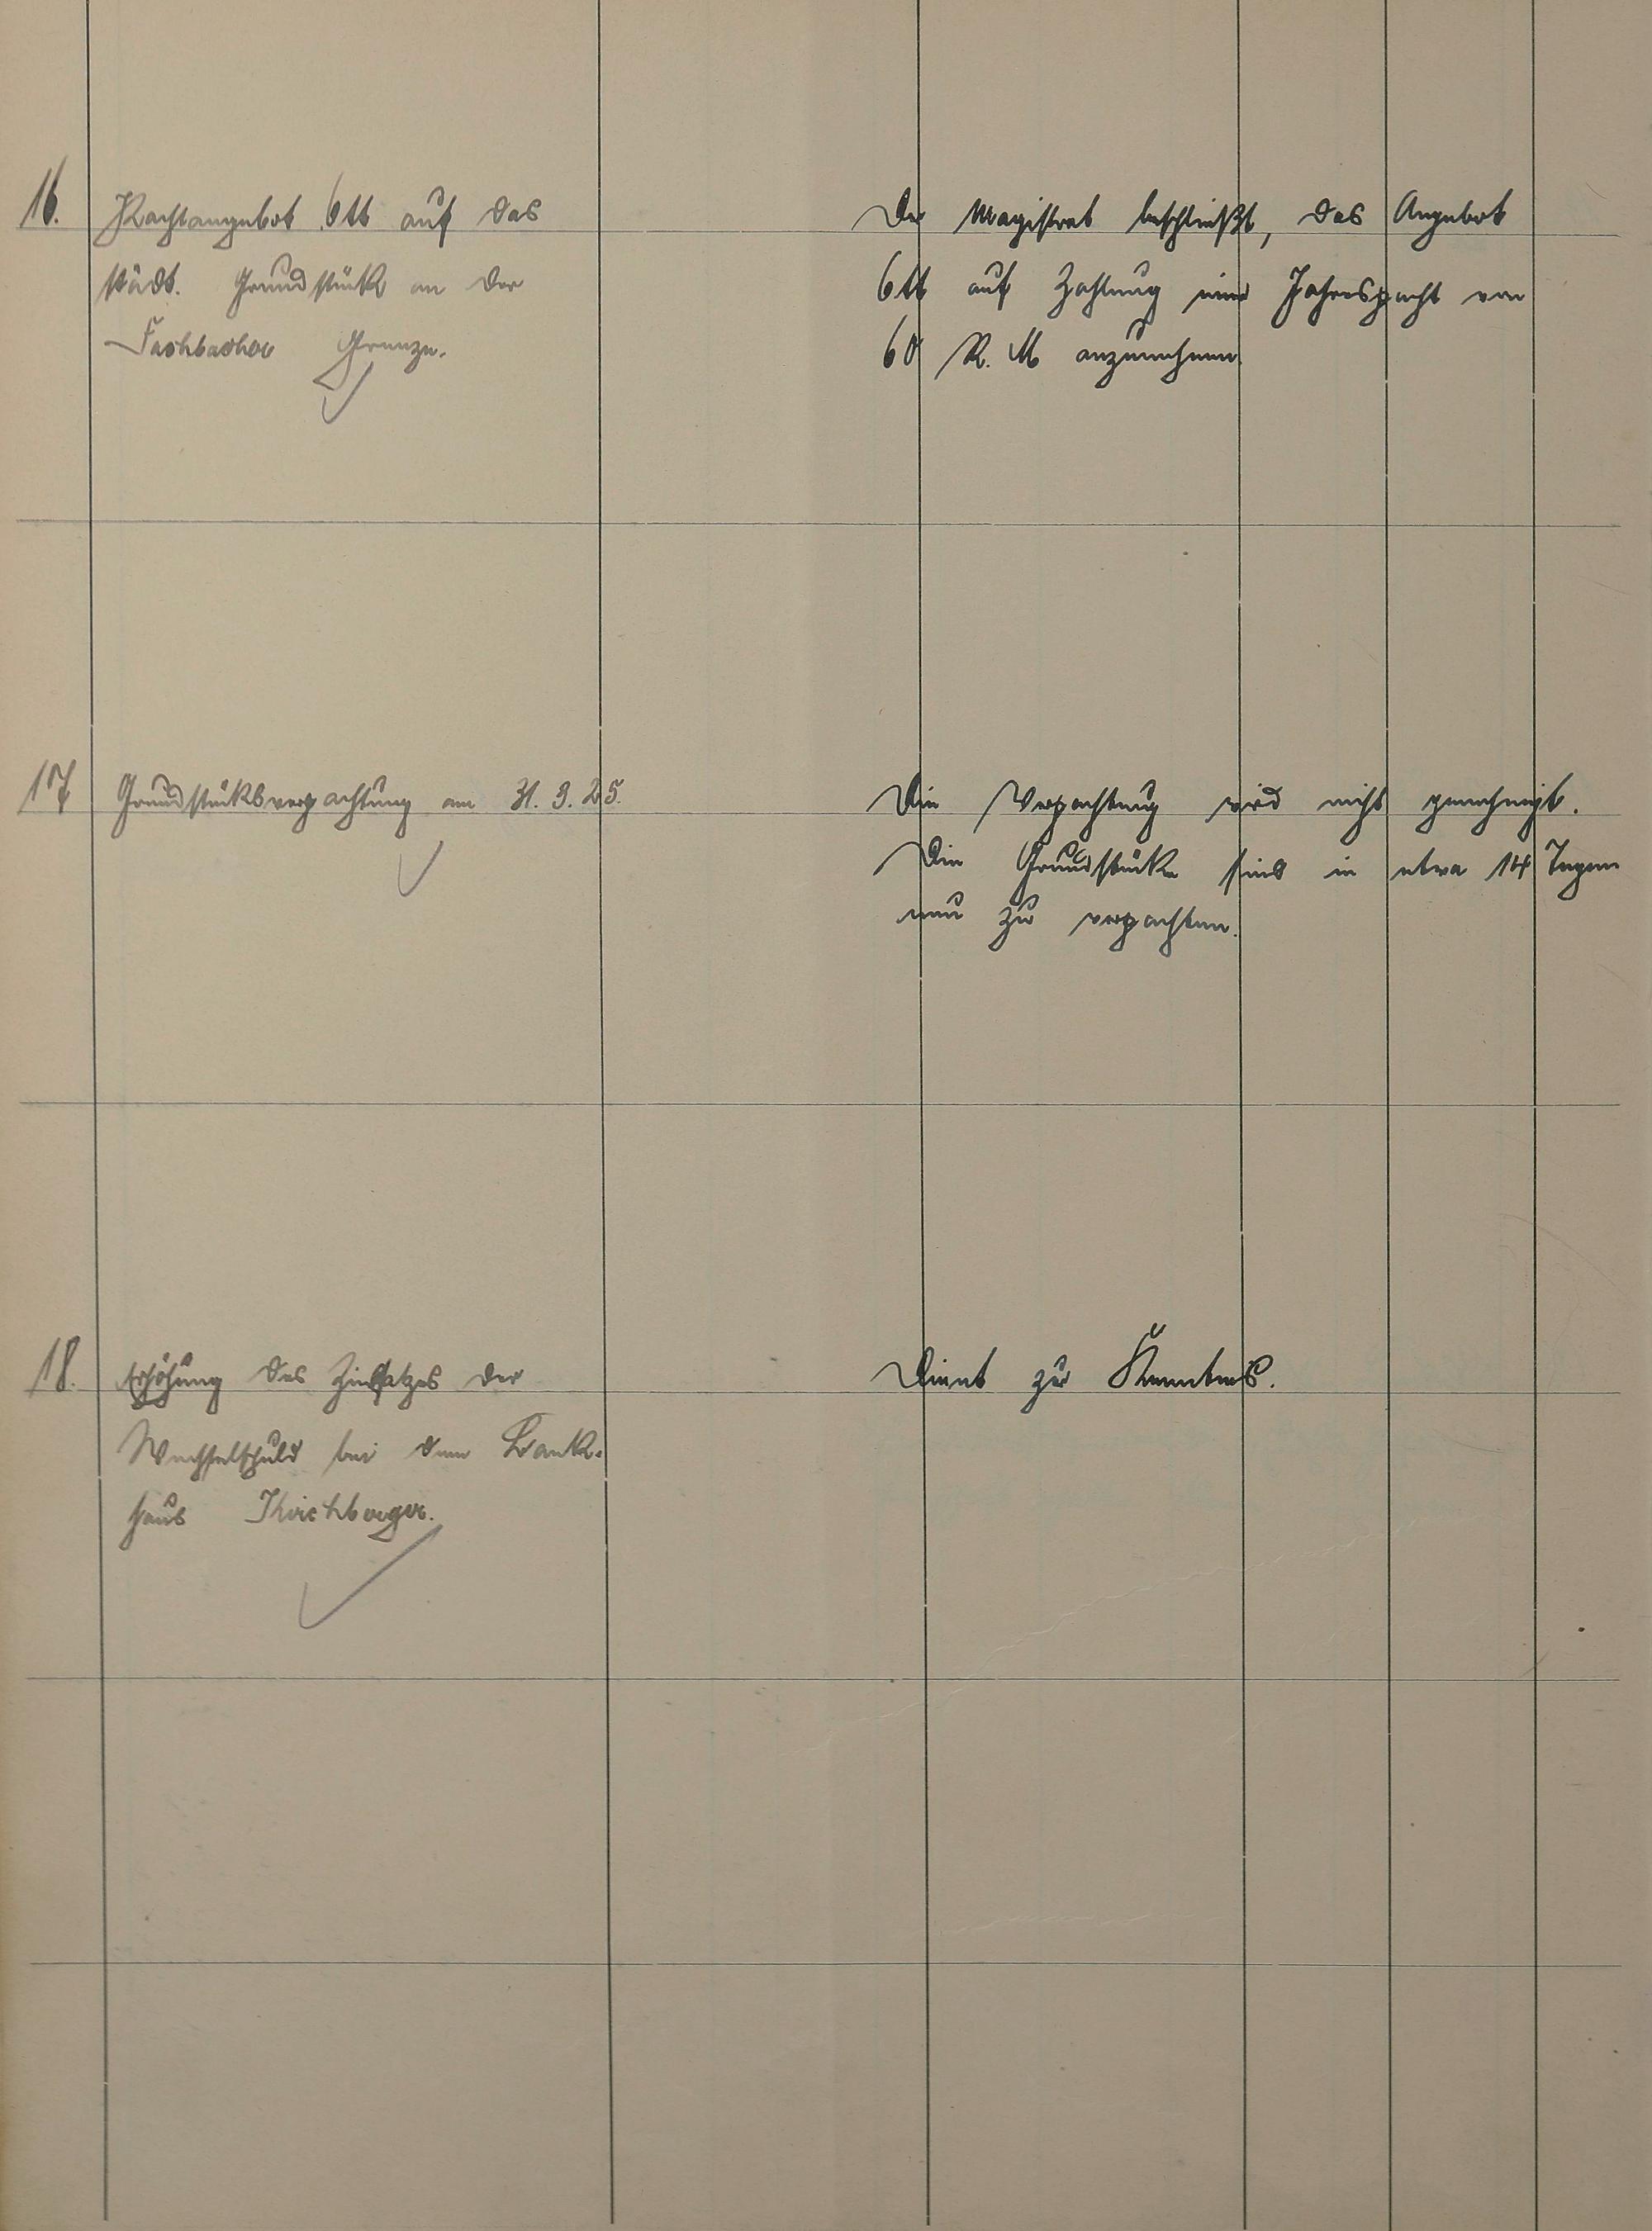 16.
Pachtangebot Ott auf das
städt. Grundstück an der
Fachbacher Grenze.
Der Magistrat beschließt, das Angebot
Ott auf Zahlung einer Jahrespacht von
60 R. M anzunehmen.
17
Grundstücksverpachtung am 31. 3. 25.
Die Verpachtung wird nicht genehmigt.
Die Grundstücke sind in etwa 14 Tagen
neu zu verpachten.
18.
Erhöhung des Zinssatzes der
Wechselschuld bei dem Bank-
haus Kirchberger.
Dient zur Kenntnis.